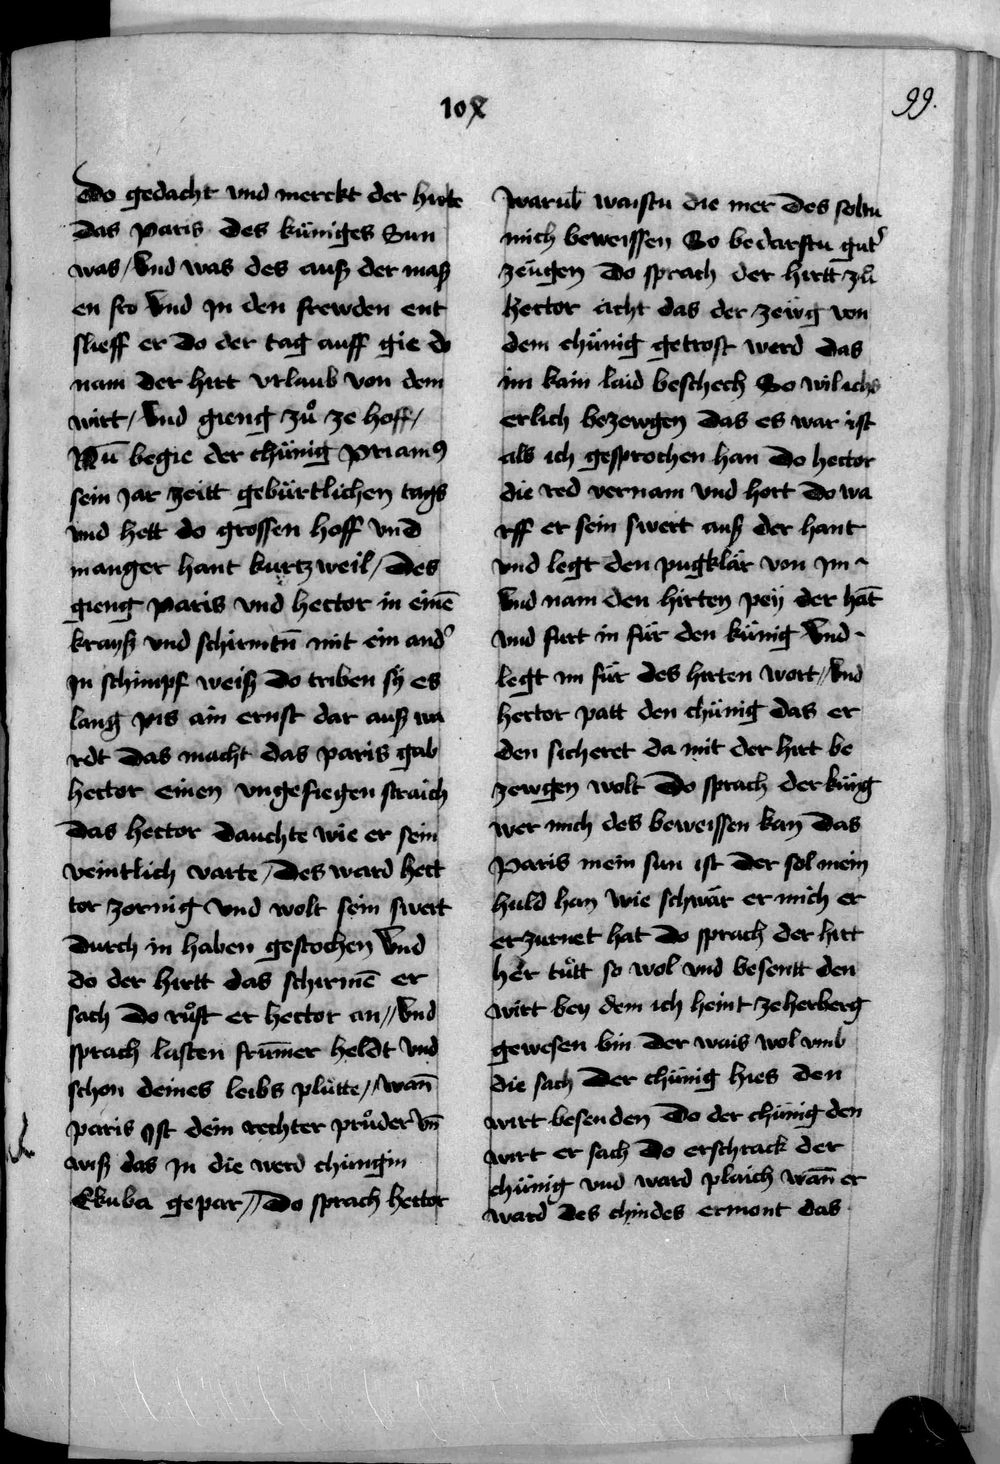 10X
99.
Do gedacht vnd merckt der hirte
das paris des küniges Sun
was / Vnd was des auß der maß
en fro Vnd jn den frewden ent
slieff er Do der tag auff gie do
nam der hirt vrlaub von dem
wirt / Vnd gieng zů ze hoff /
Nū begie der chünig priamꝰ
sein jar zeitt gebürtlichen tags
vnd hett do grossen hoff vnd
manger hant kurtzweil / Des
gieng paris vnd hector in einē
krayß vnd schirmtn̄ mit ein and͛
jn schimpf weiß Do triben sÿ es
lang pis ain ernst dar auß wa
rdt Das macht das paris gab
hector einen vngefiegen straich
Das hector dauchte wie er sein
veintlich varte / Des ward hect
tor zornig Vnd wolt sein swert
durch in haben gestochen Vnd
do der hirtt das schirmē er
sach Do růfft er hector an // Vnd
sprach lasten frūmer heldt vnd
schon deines leibs plütte // wan̄
paris jst dein rechter průder vn̄
wiß das jn die werd chüngin
Ekuba gepar // Do sprach hector
Warub̄ waistu die mer Des soltu
mich beweissen So bedarftu gut͛
zeügen Do sprach der hirtt zů
hector acht das der zewg von
dem chünig getrost werd das
im kain laid beschech So wil ichs
erlich bezewgen Das es war ist
als ich gesprochen han Do hector
die red vernam vnd hort Do wa
rff er sein swert auß der hant
vnd legt den pugklär von jm
Vnd nam den hirten peÿ der hāt
vnd furt in für den künig Vnd
legt im für des hirten wort // Vnd
hector patt den chünig das er
den sicheret da mit der hirt be
zewgen wolt Do sprach der küng
wer mich des beweissen kan Das
Paris mein sun ist Der sol mein
huld han Wie schwär er mich er
erzurnet hat Do sprach der hirt
her tütt so wol vnd besentt den
wirt bey dem ich heint ze herberg
gewesen bin Der wais wol vmb
die sach Der chünig hies den
wirt besenden Do der chünig den
wirt er sach Do erschrack der
chünig vnd ward plaich wan̄ er
ward des chindes ermont das